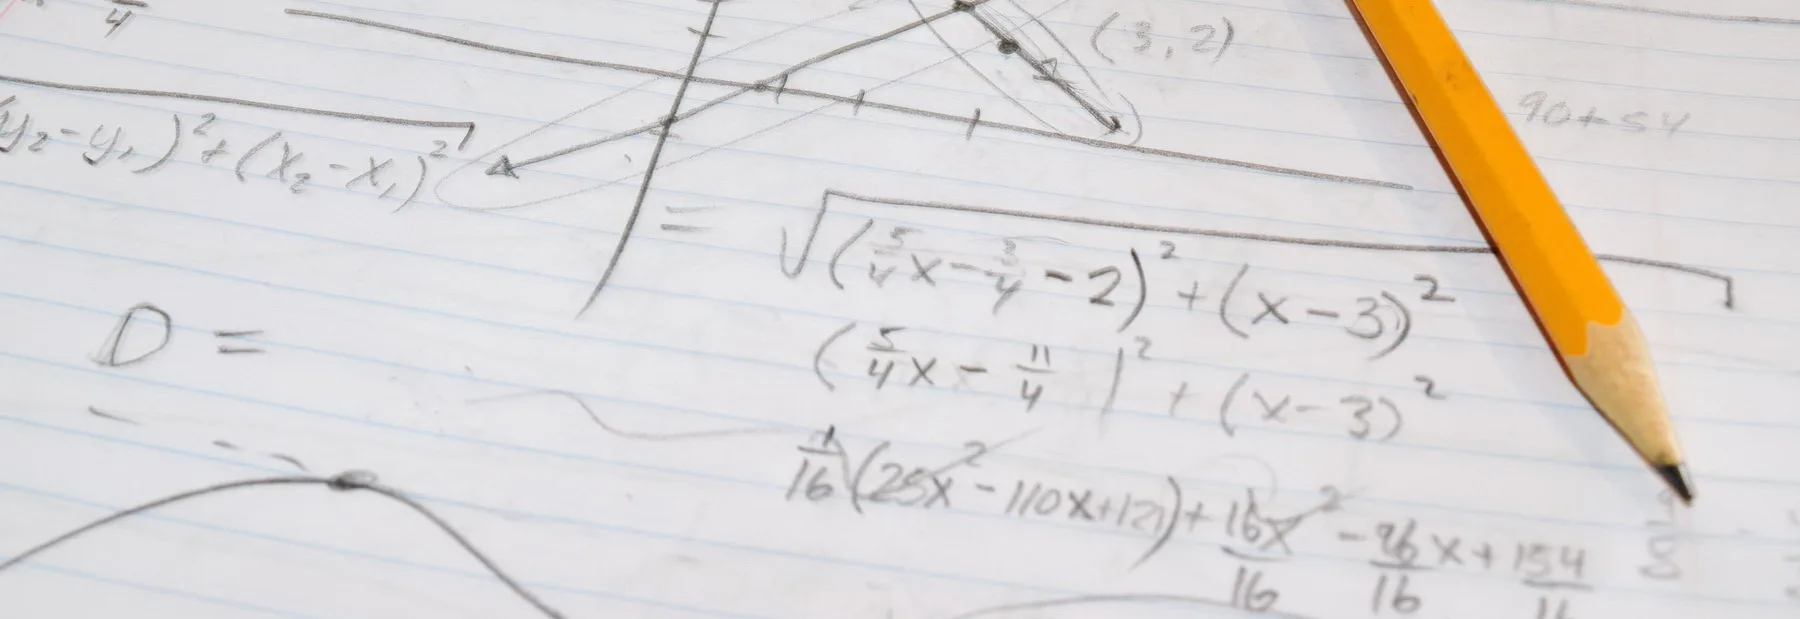 4
(3, 2)
90+54
(y₂-y₁)²+(x₂-x₁)²
= √(5/4x-3/4-2)²+(x-3)²
D =
(5/4x-11/4)²+(x-3)²
1/16(25x²-110x+121)+16x²/16-96x/16+154/16